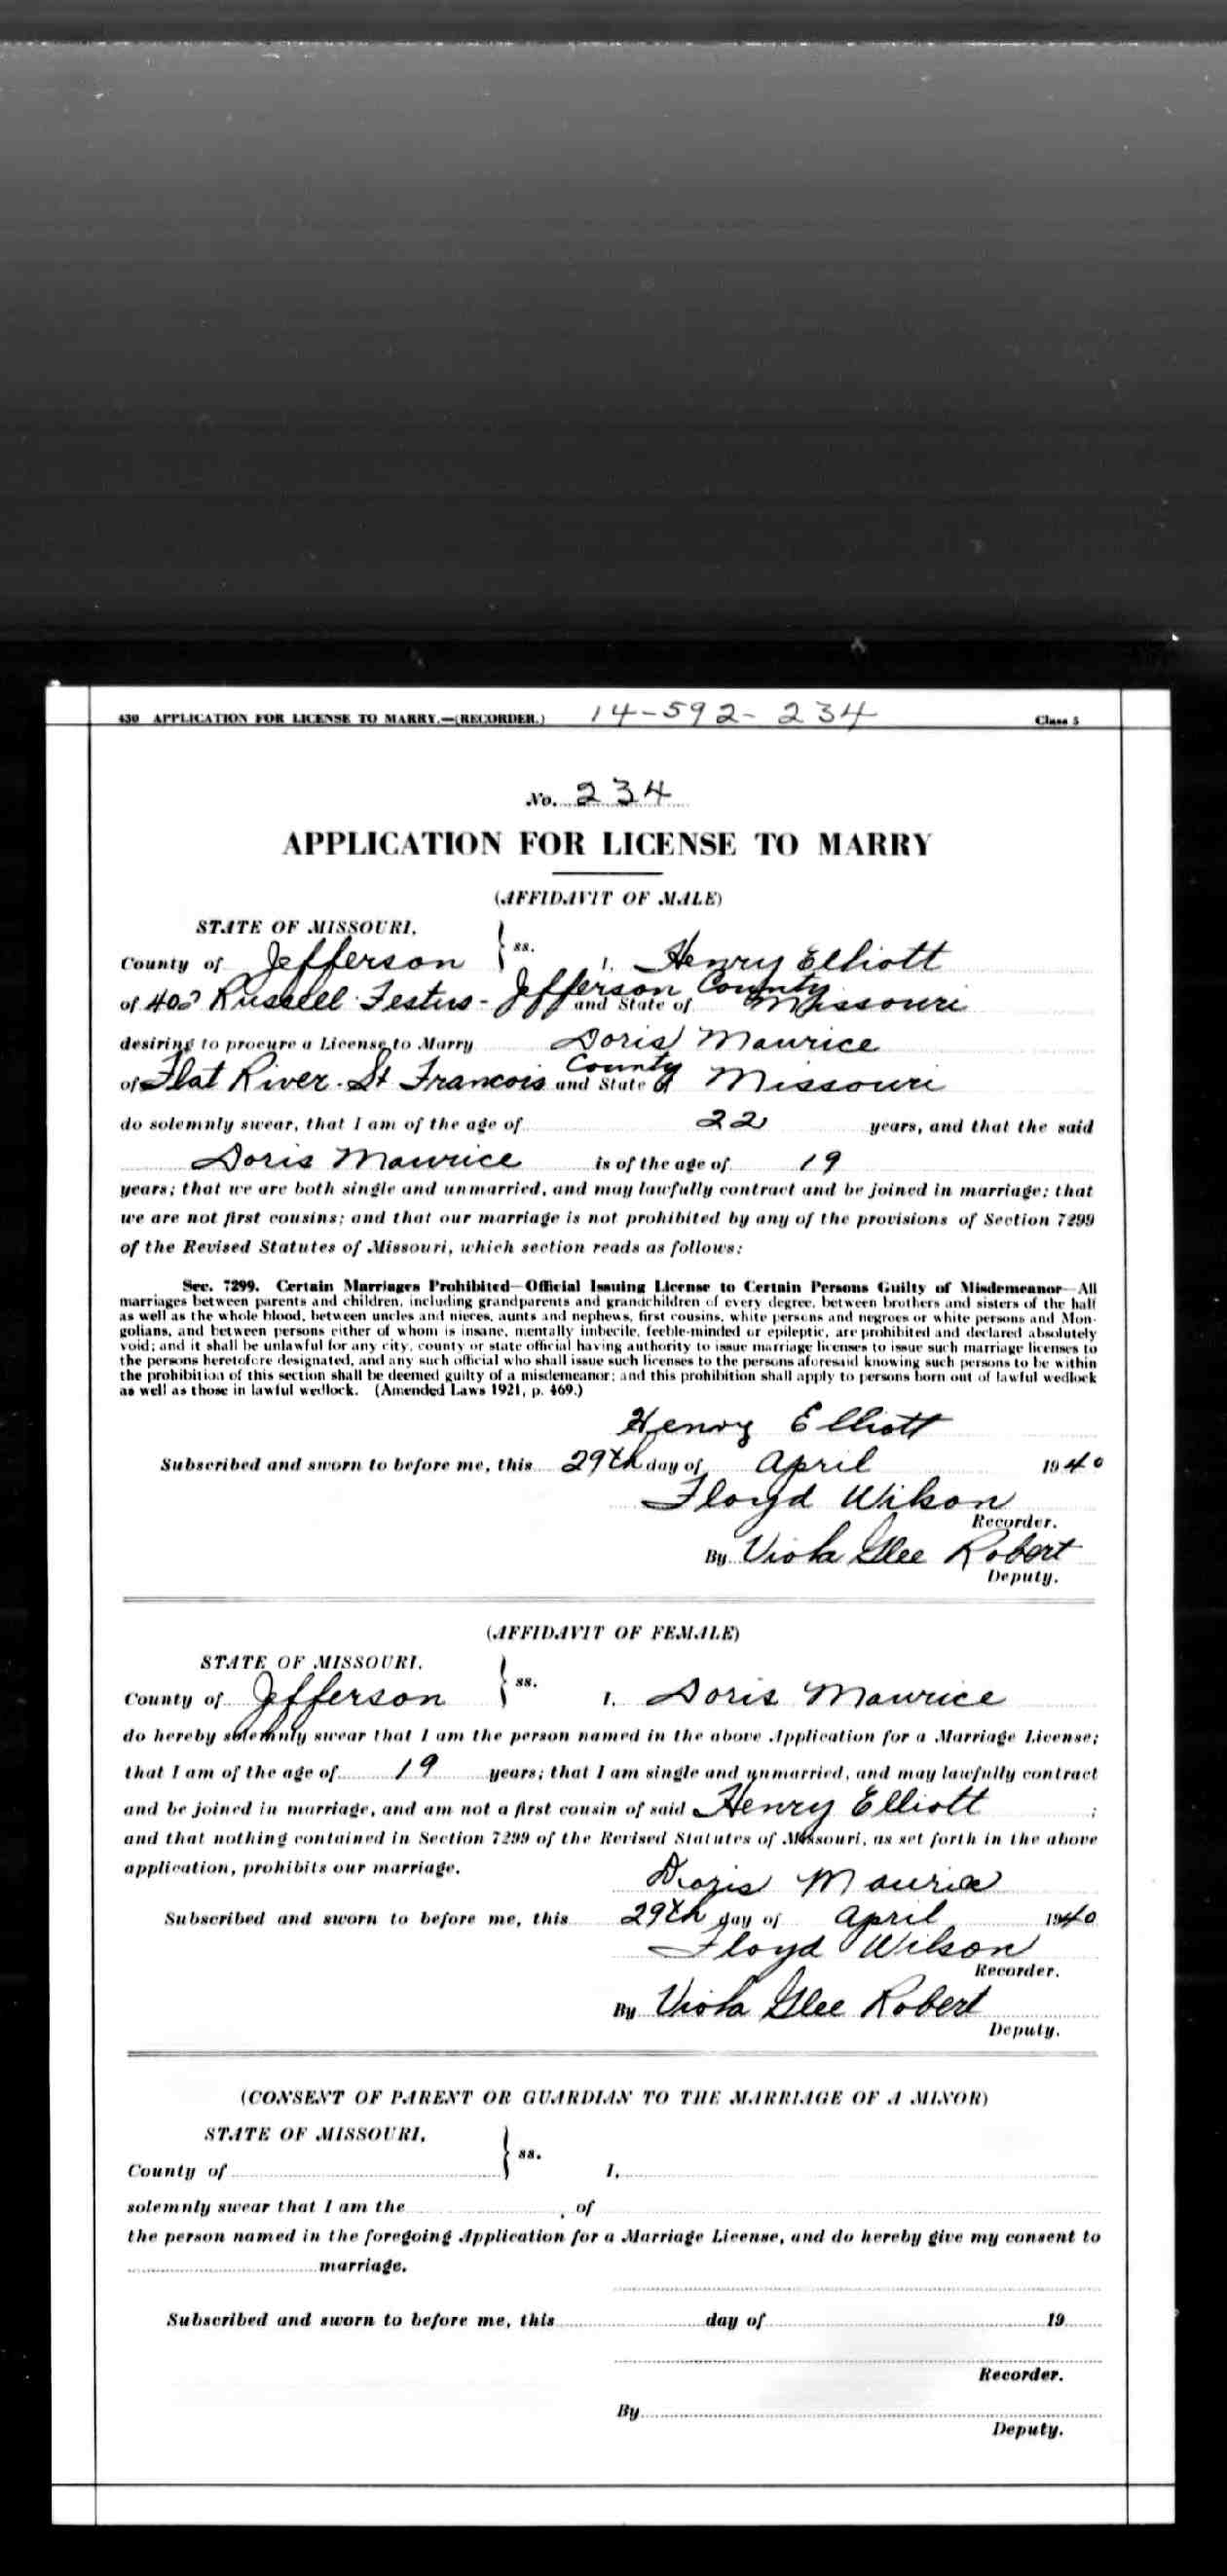 430 APPLICATION FOR LICENSE TO MARRY.—(RECORDER.) 14-592-234 Class 5
No. 234
APPLICATION FOR LICENSE TO MARRY
(AFFIDAVIT OF MALE)
STATE OF MISSOURI,
County of Jefferson } ss. I, Henry Elliott
of Russell Festus - Jefferson County and State of Missouri
desiring to procure a License to Marry Doris Maurice
of Flat River. St Francois County and State of Missouri
do solemnly swear, that I am of the age of 22 years, and that the said
Doris Maurice is of the age of 19
years; that we are both single and unmarried, and may lawfully contract and be joined in marriage; that
we are not first cousins; and that our marriage is not prohibited by any of the provisions of Section 7299
of the Revised Statutes of Missouri, which section reads as follows:
Sec. 7299. Certain Marriages Prohibited—Official Issuing License to Certain Persons Guilty of Misdemeanor—All
marriages between parents and children, including grandparents and grandchildren of every degree, between brothers and sisters of the half
as well as the whole blood, between uncles and nieces, aunts and nephews, first cousins, white persons and negroes or white persons and Mon-
golians, and between persons either of whom is insane, mentally imbecile, feeble-minded or epileptic, are prohibited and declared absolutely
void; and it shall be unlawful for any city, county or state official having authority to issue marriage licenses to issue such marriage licenses to
the persons heretofore designated, and any such official who shall issue such licenses to the persons aforesaid knowing such persons to be within
the prohibition of this section shall be deemed guilty of a misdemeanor; and this prohibition shall apply to persons born out of lawful wedlock
as well as those in lawful wedlock. (Amended Laws 1921, p. 469.)
Henry Elliott
Subscribed and sworn to before me, this 29th day of April 1940
Floyd Wilson
Recorder.
By Viola Glee Robert
Deputy.
(AFFIDAVIT OF FEMALE)
STATE OF MISSOURI,
County of Jefferson } ss. I, Doris Maurice
do hereby solemnly swear that I am the person named in the above Application for a Marriage License;
that I am of the age of 19 years; that I am single and unmarried, and may lawfully contract
and be joined in marriage, and am not a first cousin of said Henry Elliott ;
and that nothing contained in Section 7299 of the Revised Statutes of Missouri, as set forth in the above
application, prohibits our marriage.
Doris Maurice
Subscribed and sworn to before me, this 29th day of April 1940
Floyd Wilson
Recorder.
By Viola Glee Robert
Deputy.
(CONSENT OF PARENT OR GUARDIAN TO THE MARRIAGE OF A MINOR)
STATE OF MISSOURI,
County of } ss. I,
solemnly swear that I am the , of
the person named in the foregoing Application for a Marriage License, and do hereby give my consent to
marriage.
Subscribed and sworn to before me, this day of 19
Recorder.
By
Deputy.